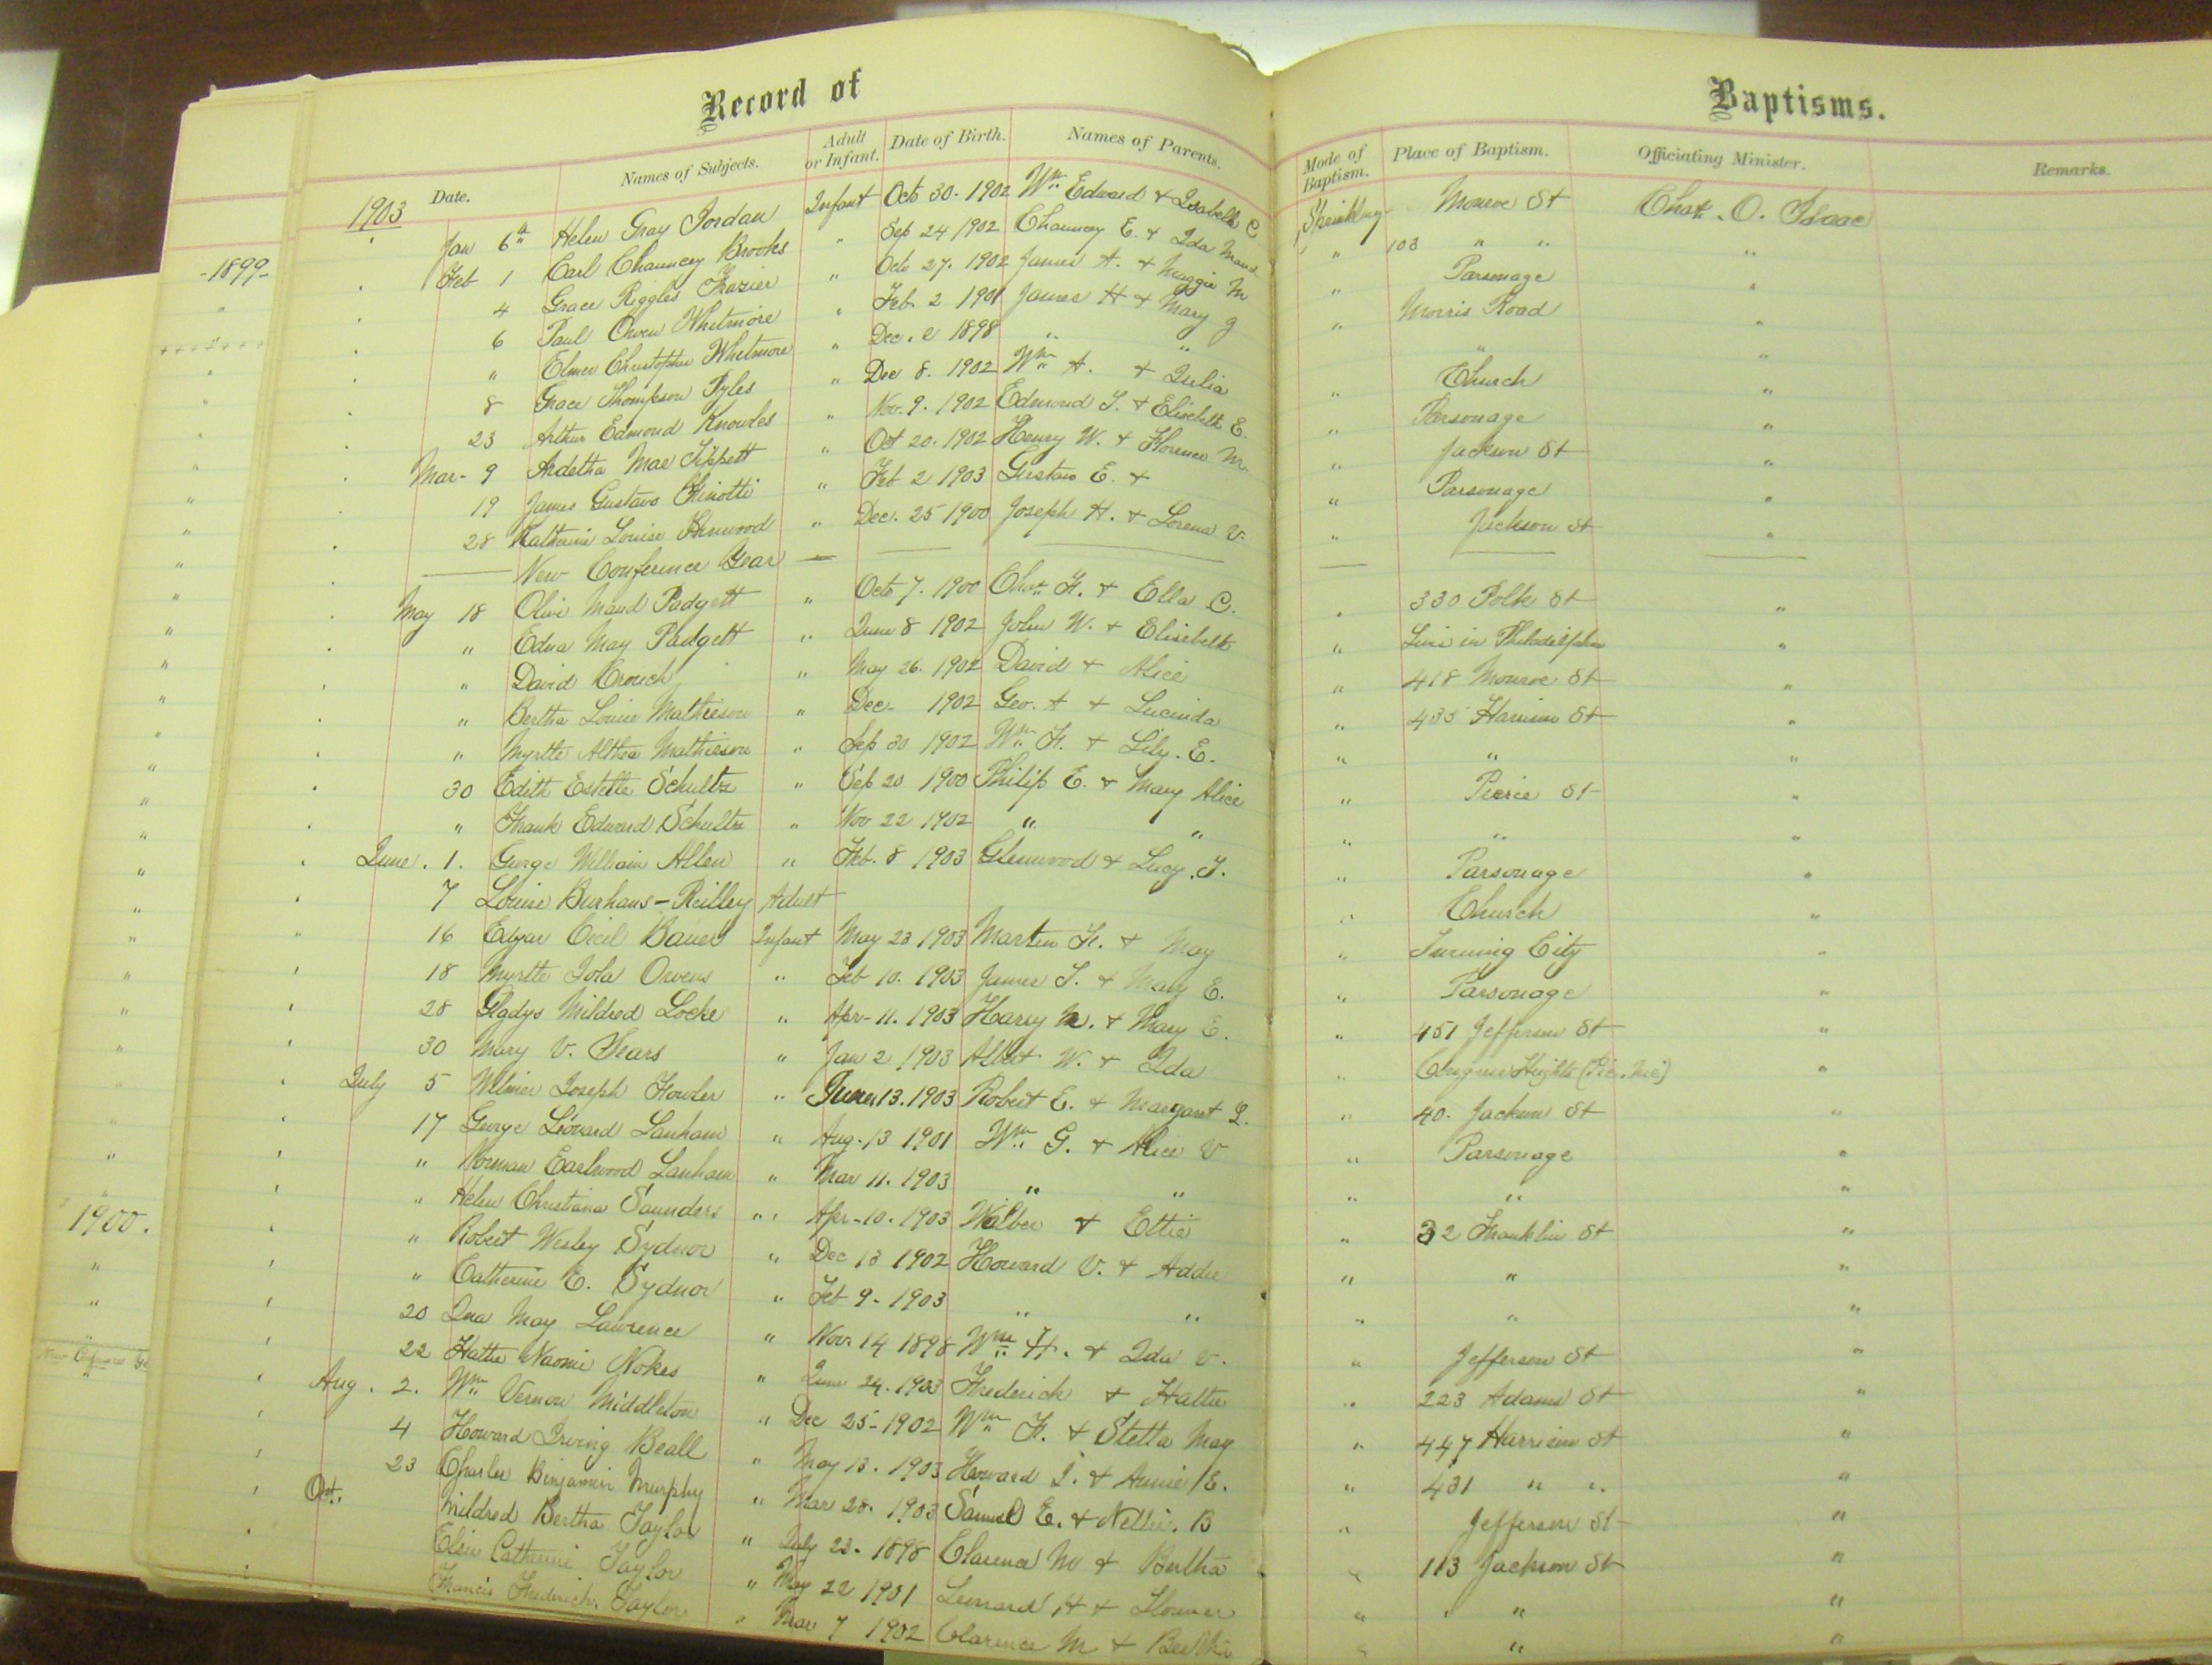 Record of Baptisms.
Date. Names of Subjects. Adult or Infant. Date of Birth. Names of Parents. Mode of Baptism. Place of Baptism. Officiating Minister. Remarks.
1903
Jan 6th Helen Gray Jordan Infant Oct 30. 1902 Wm Edward & Isabella C Sprinkling Monroe St Chas. O. Isaac
Feb 1 Carl Chauncey Brooks " Sep 24 1902 Chauncey E. & Ida Maud " 103 " " "
4 Grace Riggles Frazier " Oct 27. 1902 James A. & Maggie M " Parsonage "
6 Paul Owen Whitmore " Feb. 2 1901 James H & Mary J " Morris Road "
" Elmer Christopher Whitmore " Dec. 2 1898 " " " "
8 Grace Thompson Pyles " Dec 8. 1902 Wm A. & Julia " Church "
23 Arthur Edmond Knowles " Nov. 9. 1902 Edmond S. & Elisebeth E. " Parsonage "
Mar- 9 Ardetha Mae Tippett " Oct 20. 1902 Henry W. & Florence M. " Jackson St "
19 James Gustavo " Feb 2 1903 Gustavo E. & " Parsonage "
28 Katherine Louise " Dec. 25 1900 Joseph H. & Lorena V. " Jackson St "
New Conference Year
May 18 Olive Maud Padgett " Oct 7. 1900 Chas. F. & Ella C. " 330 Polk St "
" Edna May Padgett " June 8 1902 John W. & Elisebeth " Live in Philadelphia "
" David Crouch " May 26. 1902 David & Alice " 418 Monroe St "
" Bertha Louise Mathieson " Dec- 1902 Geo. A & Lucinda " 435 Harrison St "
" Myrtle Althea Mathieson " Sep 30 1902 Wm F. & Lily. E. " " "
30 Edith Estelle Schultz " Sep 20 1900 Philip E. & Mary Alice " Pierce St "
" Frank Edward Schultz " Nov 22 1902 " " " " "
June. 1. George William Allen " Feb. 8 1903 Glenwood & Lucy. T. " Parsonage "
7 Louise Burhans-Reilley Adult " Church "
16 Edgar Cecil Bauer Infant May 23 1903 Martin F. & May " Twining City "
18 Myrtle Iola Owens " Feb 10. 1903 James T. & Mary E. " Parsonage "
28 Gladys Mildred Locke " Apr- 11. 1903 Harry M. & Mary E. " 451 Jefferson St "
30 Mary V. Sears " Jan 2 1903 Albert W. & Ida " Congress Heights "
July 5 Wilmer Joseph Fowler " June 13. 1903 Robert E. & Margaret L. " 40. Jackson St "
17 George Leonard Lanham " Aug. 13 1901 Wm G. & Alice V " Parsonage "
" Norman Earlwood Lanham " Mar 11. 1903 " " " " "
" Helen Christiana Saunders " Apr- 10. 1903 Walber & Ettie " 32 Franklin St "
" Robert Wesley Sydnor " Dec 13 1902 Howard V. & Addie " " "
" Catherine E. Sydnor " Feb 9- 1903 " " " " "
20 Ina May Lawrence " Nov. 14 1898 Wm H. & Ida V. " Jefferson St "
22 Hattie Naomi Nokes " June 24. 1903 Frederick & Hattie " 223 Adams St "
Aug. 2. Wm Vernon Middleton " Dec 25- 1902 Wm F. & Stetta May " 447 Harrison St "
4 Howard Irving Beall " May 13. 1903 Howard I. & Annie E. " 431 " " "
23 Charles Binjamin Murphy " Mar 28. 1903 Samuel E. & Nellie. B " Jefferson St "
Oct. Mildred Bertha Taylor " July 23. 1898 Clarence M & Bertha " 113 Jackson St "
Elsie Catherine Taylor " May 22 1901 Leonard H & " " "
Francis Frederick Taylor " Mar 7 1902 Clarence M & Bertha " " "
-1899-
1900.
New Conference